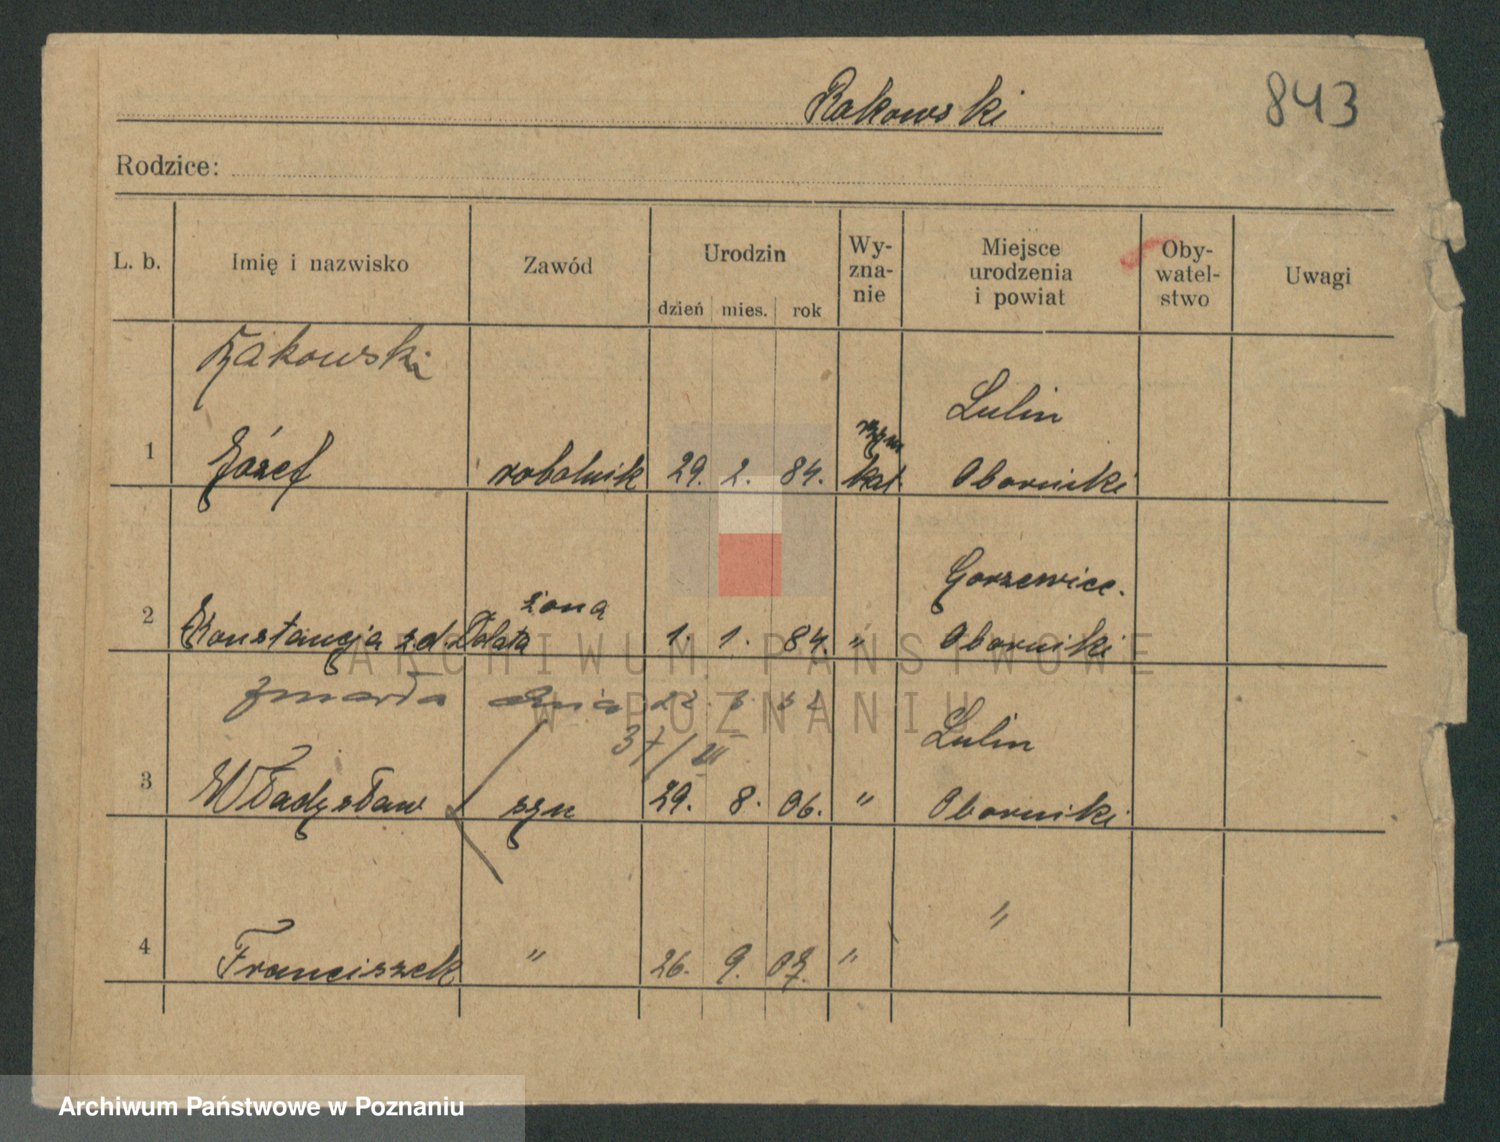 Rakowski 843
Rodzice:
L. b. Imię i nazwisko Zawód Urodzin dzień mies. rok Wy-zna-nie Miejsce urodzenia i powiat Oby-watel-stwo Uwagi
Rakowski
Lulin
1 Józef robotnik 29. 2. 84. rzym kat Oborniki
żona Gorzewice.
2 Konstancja z d. Polata 1. 1. 84. " Oborniki
zmarła dnia
Lulin
3 Władysław syn 29. 8. 06. " Oborniki
"
4 Franciszek " 26. 9. 07. "
ARCHIWUM PAŃSTWOWE
W POZNANIU
Archiwum Państwowe w Poznaniu